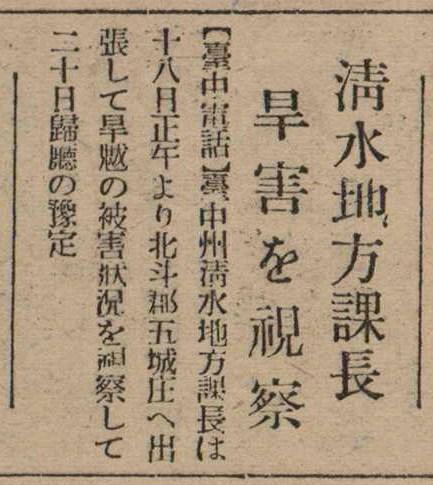 清水地方課長
旱害を視察
【臺中電話】臺中州清水地方課長は
十八日正午より北斗郡五城庄へ出
張して旱魃の被害狀況を視察して
二十日歸廳の豫定